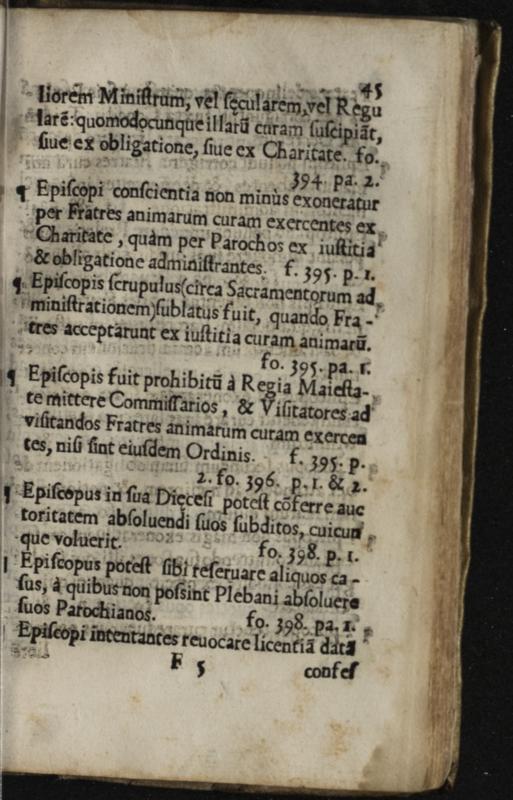 45
liorem Ministrum, vel sęcularem, vel Regu
larē: quomodocunque illarū curam suscipiāt,
siue ex obligatione, siue ex Charitate. fo.
394 pa. 2.
¶ Episcopi conscientia non minùs exoneratur
per Fratres animarum curam exercentes ex
Charitate, quàm per Parochos ex iustitia
& obligatione administrantes. f. 395. p. 1.
¶ Episcopis scrupulus(circa Sacramentorum ad
ministrationem)sublatus fuit, quando Fra-
tres acceptarunt ex iustitia curam animarū.
fo. 395. pa. 1.
¶ Episcopis fuit prohibitū à Regia Maiesta-
te mittere Commissarios, & Visitatores ad
visitandos Fratres animarum curam exercen
tes, nisi sint eiusdem Ordinis. f. 395. p.
2. fo. 396. p. 1. & 2.
¶ Episcopus in sua Dięcesi potest cōferre auc
toritatem absoluendi suos subditos, cuicun
que voluerit. fo. 398. p. 1.
Episcopus potest sibi reseruare aliquos ca-
sus, à quibus non possint Plebani absoluere
suos Parochianos. fo. 398. pa. 1.
Episcopi intentantes reuocare licentiā datā
F 5 confes